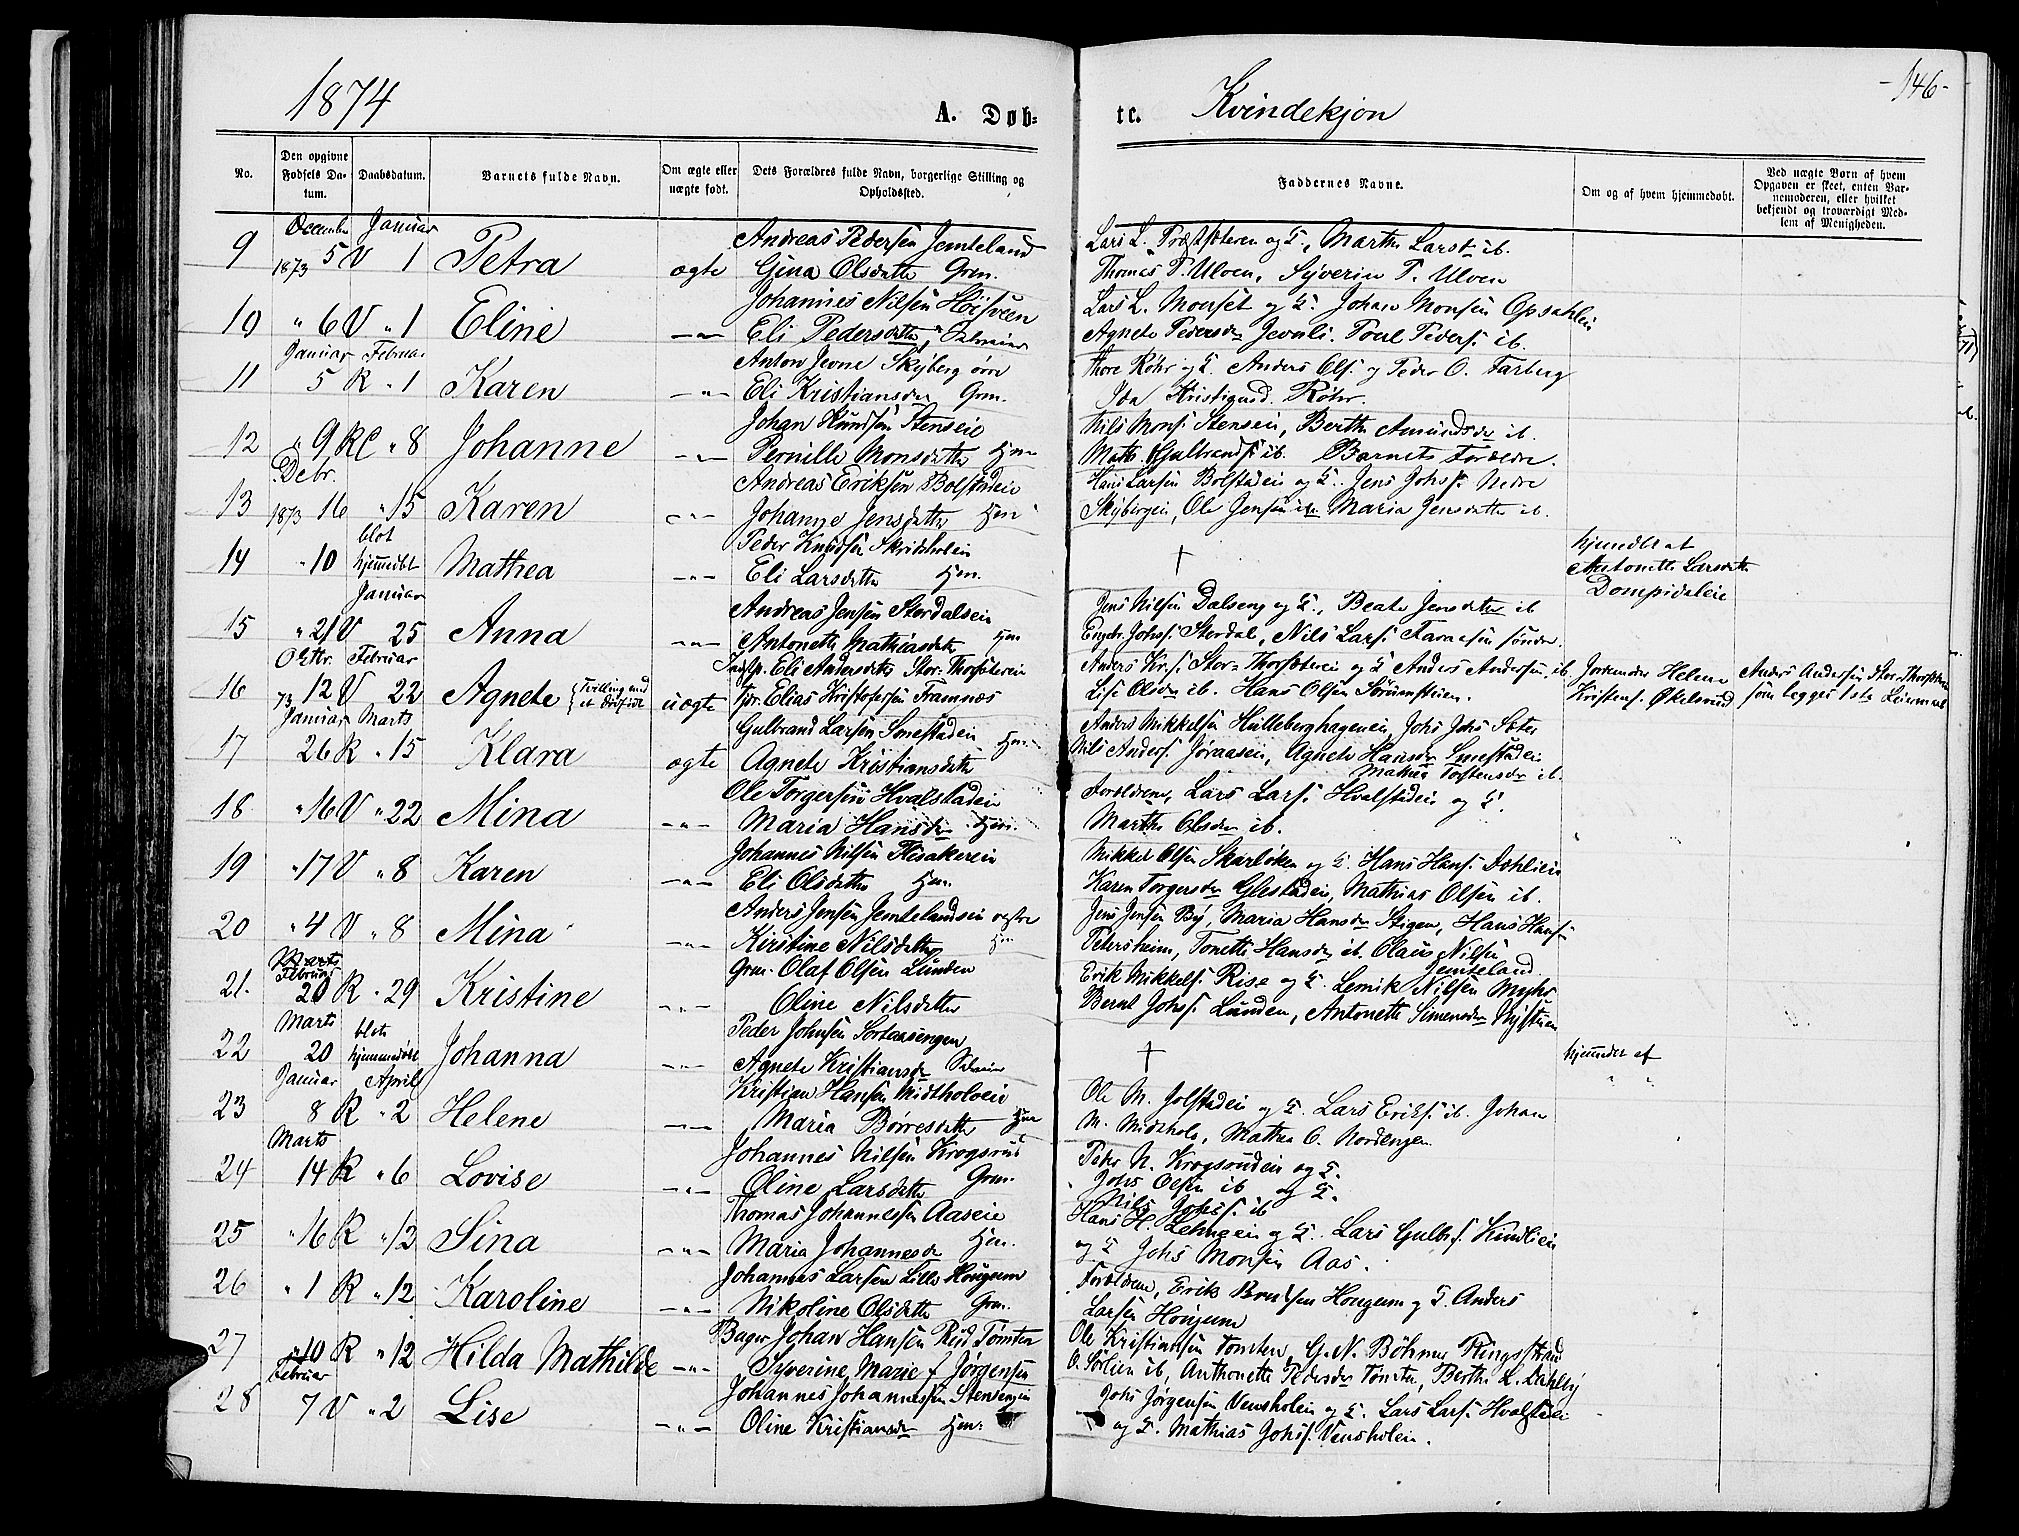 1874
A. Døb-
te. Kvindekjøn
-146-
No.
Den opgivne Fødsels Datum.
Daabsdatum.
Barnets fulde Navn.
Om ægte eller uægte født.
Dets Forældres fulde Navn, borgerlige Stilling og Opholdssted.
Faddernes Navne.
Om og af hvem hjemmedøbt.
Ved uægte Børn af hvem Opgaven er skeet, enten Barnemoderen, eller hvilket bekjendt og troværdigt Medlem af Menigheden.
December Januar Andreas Pedersen Jemteland Lars L. og F., Marthe Larsd. ib.
9 1873 5 V 1 Petra ægte Gina Olsdatter Grm. Thomas T. Ulven, Syverin T. Ulven
Johannes Nilsen Høisveen Lars L. Moerset og F. Johan Monsen Opsahlein
10 " 6 V " 1 Eline -"- Eli Pedersdatter, Agnete Pedersdr Jevnli. Poul Peders. ib.
Januar Februar Anton Jevne Skyberg øvre Thore Røhr og F. Anders Ols. og Peder O. Farberg
11 5 R " 1 Karen -"- Eli Kristiansdr Grm. Ida Kristiansd. Røhr.
Johan Knudsen Stenseie Nils Mons. Stenseie, Berthe Amundsdr ib.
12 " 9 R " 8 Johanne -"- Pernille Monsdatter Hjm. Math. Gulbrands. ib. Barnets Foreldre.
Debr. Andreas Eriksen Bolstadeie Hans Larsen Bolstadeie og F. Jens Johs. Nedre
13 1873 16 " 15 Karen -"- Johanne Jensdatter Hjm. Skybergei, Ole Jensen ib. Maria Jensdatter ib.
blot Peder Knudsen hjemdbt af
14 " 10 hjemedbt Mathea -"- Eli Larsdatter Hjm. † Antonette Larsdatter
Dompidaleie
Januar Andreas Jensen Stordalseie Jens Nilsen Dalseng og F., Beate Jensdatter ib
15 " 21 V 25 Anna -"- Antonette Mathiasdatter Hjm. Engbr. Johs. Stordal, Nils Lars. søndre
Oktbr. Februar Indsp. Eli Andersdatter Stor-Thorstereie Anders Kr.s. Stor-Thorstereie og F. Anders Andersen ib. Jordemoder Helene Anders Andersen Stor-Thorstereie
16 73 12 V 22 Agnete {Tvilling med et dødfødt uægte Elias Kristofersen Framnæs Lise Olsdr ib. Hans Olsen Kristens. Økelsrud som legges 1ste Leiermaal
Januar Marts Gulbrand Larsen Smestadeie Hjm. Anders Mikkelsen Hulleberghagenei, Johs Johs Sæter
17 26 R " 15 Klara ægte Agnete Kristiansdatter Nils Anders. Jøraaseie, Agnete Hansdr Smestadeie
Mathea Torstensdr ib.
Ole Torgersen Hvalstadeie Foreldrene, Lars Lars. Hvalstadeie og F.
18 " 16 V " 22 Mina -"- Maria Hansdr Hjm. Marthe Olsdr ib.
Johannes Nilsen Flisakereie Mikkel Olsen Skarløken og F. Hans Hans. Dæhlieie
19 " 17 V " 8 Karen -"- Eli Olsdatter Hjm. Karen Torgersdr Glestadeie, Mathias Olsen ib.
Anders Jensen Jemtelandseie vestre Jens Jensen By, Maria Hansdr Stigen, Hans Hans.
20 " 4 V " 8 Mina -"- Kirstine Nilsdatter Petersheim, Tonette Hansdr ib. Olaus Nilsen
Jemteland.
Marts Februar Grm. Olaf Olsen Lunden Erik Mikkels. Rise og F. Lemik Nilsen Myhr
21. 20 R " 29 Kristine -"- Oline Nilsdatter Bernt Johs. Lunden, Antonette Simensdr Nystuen
Marts blot Peder Johnsen
22 20 hjemmedøbt Johanna -"- Agnete Kristiansdr † hjemdbt af
Januar April Kristian Hansen Midtholveie Ole M. Jolstadeie og F. Lars Eriks. ib. Johan
23 8 R " 2 Helene -"- Maria Børresdatter Hjm M. Midtholv, Mathea O. Nordengen
Marts Johannes Nilsen Krogsrud Peder N. Krogsrudeie og F.
24 14 R " 6 Lovise -"- Oline Larsdatter Grm. Johs Olsen ib og F.
Nils Johs. ib
Thomas Johannessen Aaseie Hans H. og F. Lars Gulbr. Kindlieie
25 " 16 R " 13 Sina -"- Maria Johannesdr Hjm. og F Johs Monsen Aas.
Johannes Larsen Lille Hougum Foreldrene, Erik Hougum og F. Anders
26 " 1 R " 12 Karoline -"- Nikoline Olsdatter Grm. Larsen Hougum
Bager Johan Hansen Tømten Ole Kristiansen Tomten, G. N. Bøhmer Ringsstrand
27 " 10 R " 12 Hilda Mathilde -"- Syverine Marie f Jørgensen O. Sørlien ib, Anthonette Pedersdr Tømten, Berthe L. Dæhlby
Februar Johannes Johannessen Stensengen Johs Jørgensen Vensholeie og F. Lars Lars. Hvalstadeie
28 7 V " 2 Lise -"- Oline Kristiansdr Hjm. og F. Mathias Johs. Vensholeie.